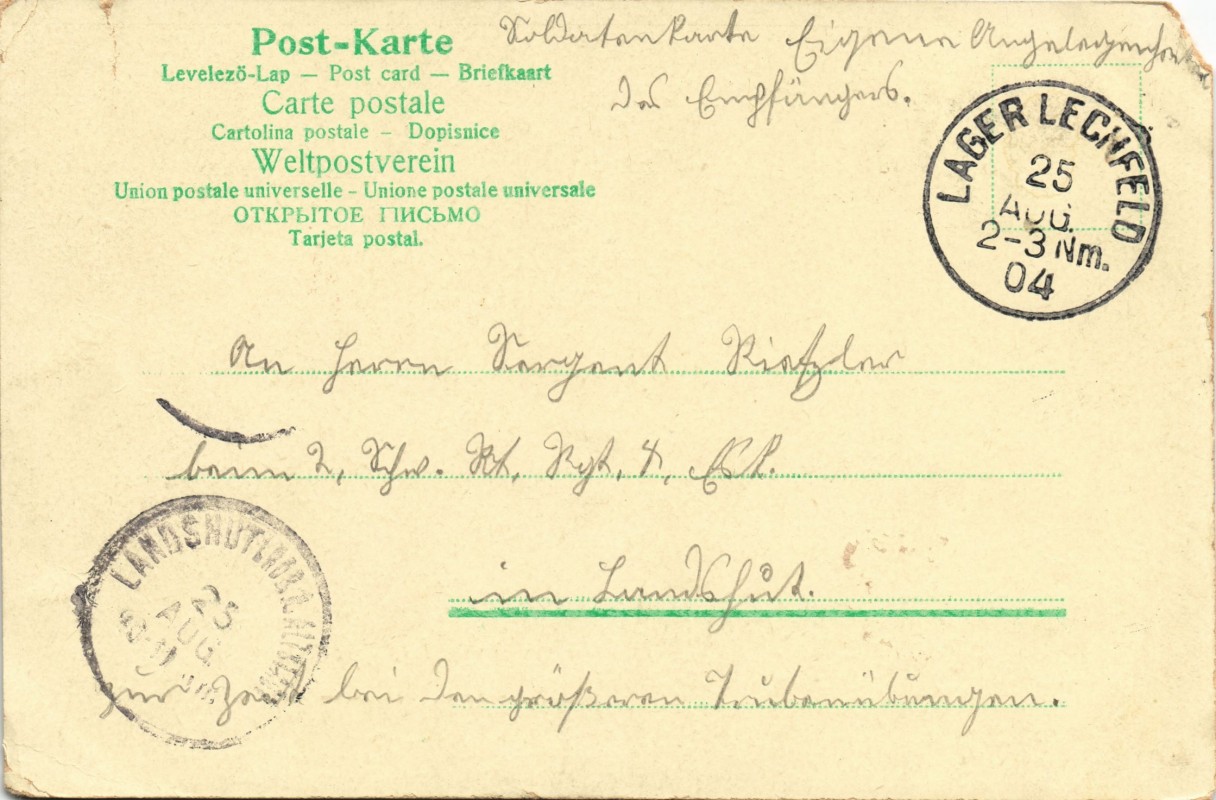 Post-Karte
Levelezö-Lap — Post card — Briefkaart
Carte postale
Cartolina postale – Dopisnice
Weltpostverein
Union postale universelle – Unione postale universale
ОТКРЫТОЕ ПИСЬМО
Tarjeta postal.
Soldatenkarte Eigene Angelegenheit
des Empfängers.
LAGER LECHFELD
25
AUG.
2-3 Nm.
04
An Herrn Sergent
beim 2. Schw. Rt. Rgt. 4. Esk.
in Landshut.
LANDSHUT
25
AUG.
zur Zeit bei den größeren Trubenübungen.